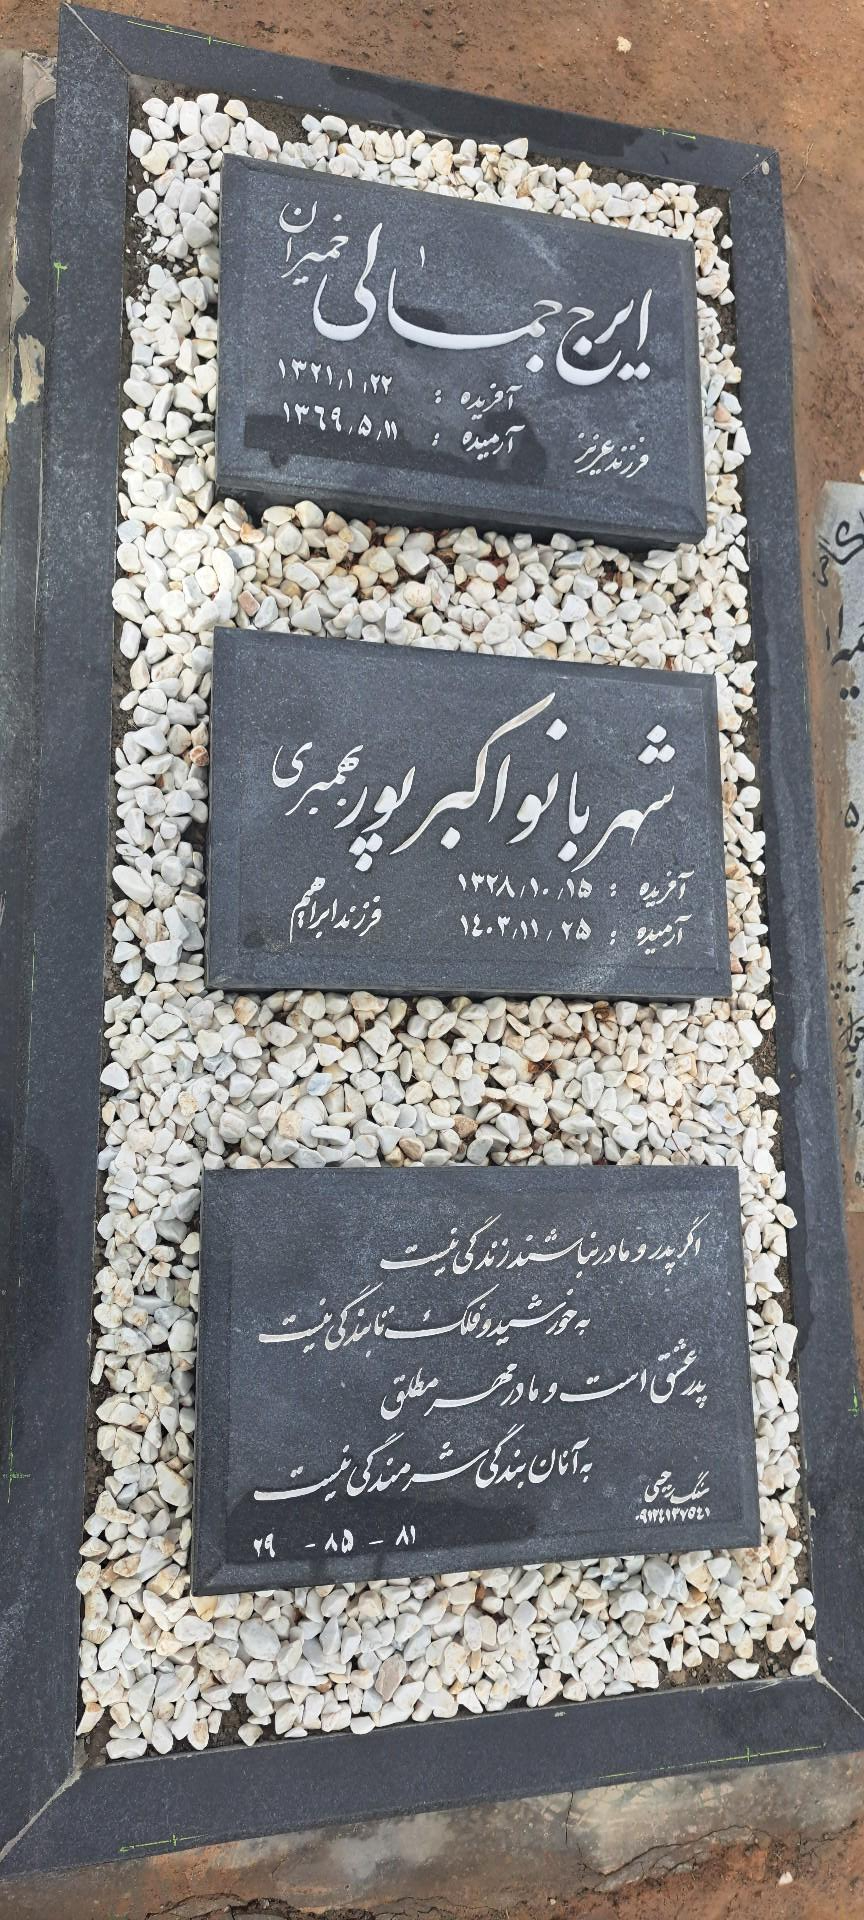 ایرج جمالی خمیران
آفریده : ۱۳۲۱/۱/۲۲
آرمیده : ۱۳۶۹/۵/۱۱
فرزند عزیز
شهربانو اکبرپور بهمبری
آفریده : ۱۳۲۸/۱۰/۱۵
آرمیده : ۱۴۰۳/۱۱/۲۵
فرزند ابراهیم
اگر پدر و مادر نباشند زندگی نیست
به خورشید و فلک تابندگی نیست
پدر عشق است و مادر مهر مطلق
به آنان بندگی شرمندگی نیست
سنگ رجبی
۰۹۱۲۴۱۳۷۵۴۱
۲۹ - ۸۵ - ۸۱